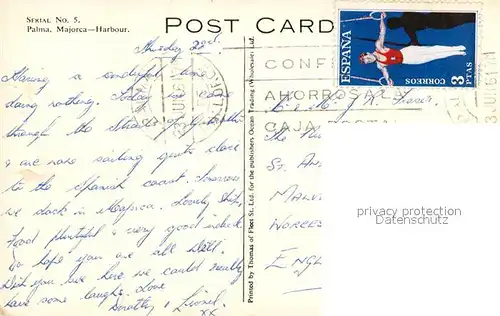 Serial No. 5.
Palma, Majorca—Harbour.
POST CARD
Thursday 22nd.
Having a wonderful time
doing nothing. Today we came
through the Straits of Gibraltar
& we are now sailing quite close
to the Spanish coast. Tomorrow
we dock in Majorca. Lovely ship,
Food plentiful & very good indeed.
Do hope you are all well.
Wish you were here we could really
have some laughs. Love
Dorothy & Lionel.
xx
Printed by Thomas of Fleet St., Ltd. for the publishers Ocean Trading (Wholesale) Ltd.
ESPAÑA
CORREOS
3 PTAS
AHORROS
CAJA POSTAL
The
St. An
Malv
Worces
Engl
privacy protection
Datenschutz